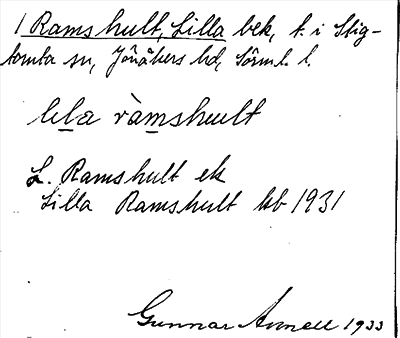 1 Ramshult, Lilla bek, t. i Stig-
tomta sn, Jönåkers hd, Sörml. l.
lila ràmshult
L. Ramshult ek
Lilla Ramshult kb 1931
Gunnar 1933